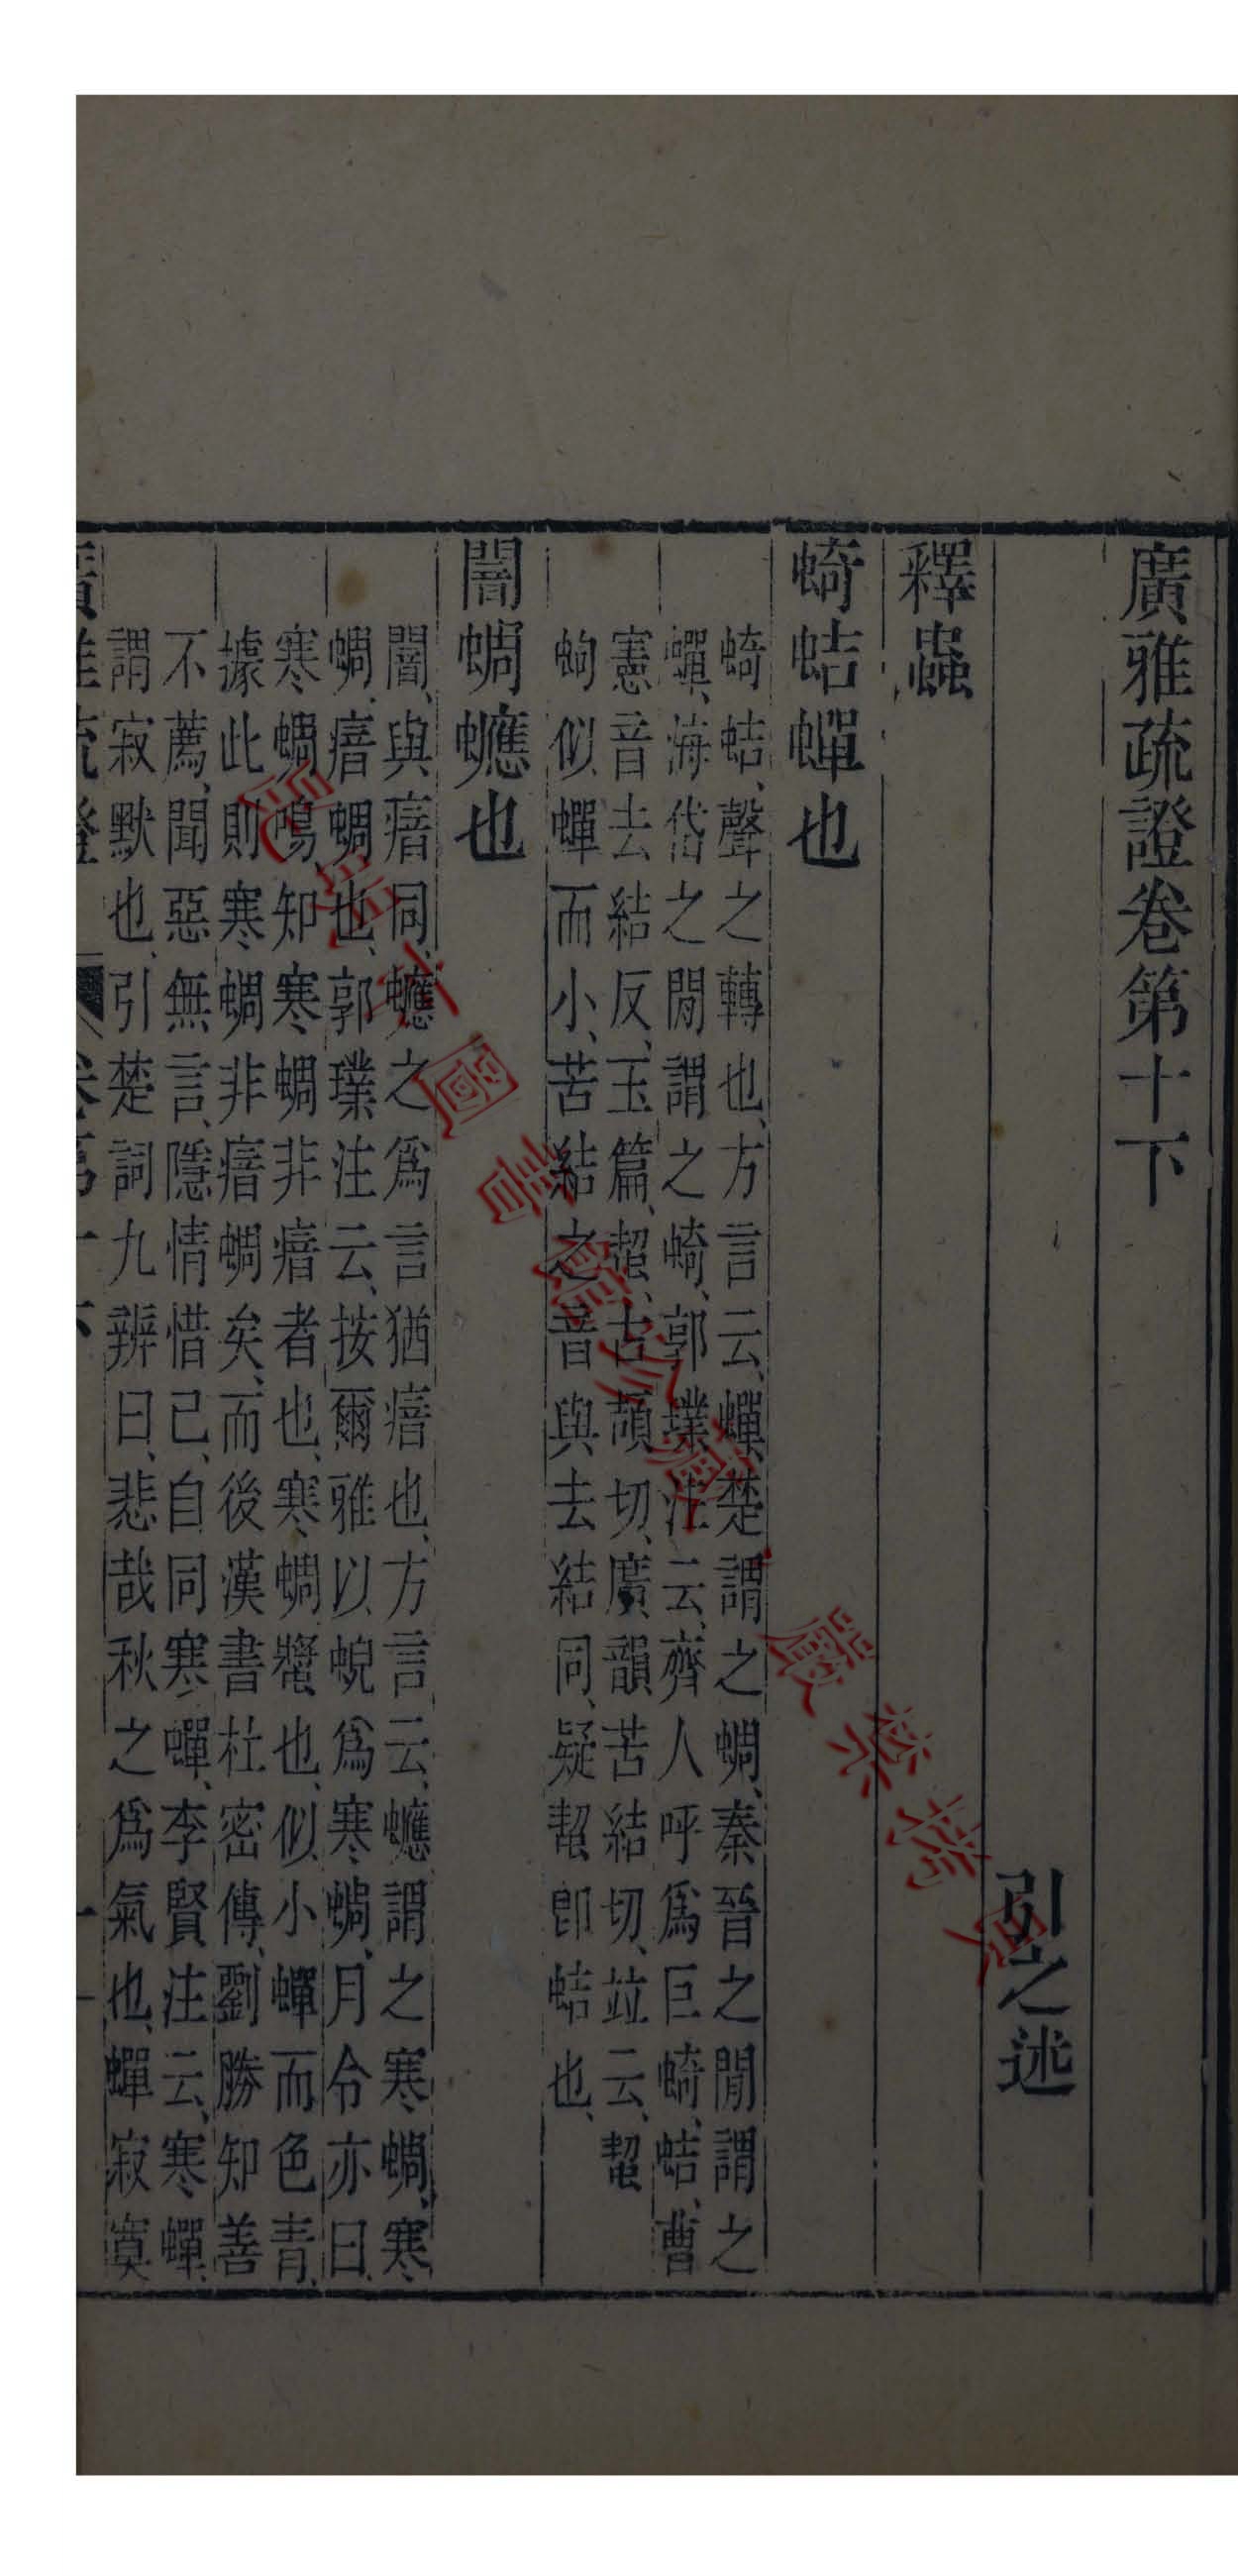 廣雅疏證卷第十下
引之述
釋蟲
蛴蛣蟬也
蛴蛣、聲之轉也、方言云、蟬、楚謂之蜩、秦晉之閒謂之
蟬、海岱之閒謂之蛴、郭璞注云、齊人呼爲巨蛴、蛣、曹
憲音去結反、玉篇、𧍪、古頡切、廣韻苦結切、竝云、𧍪
蚼似蟬而小、苦結之音與去結同、疑𧍪卽蛣也、
闇蜩䗹也
闇、與瘖同、䗹之爲言猶瘖也、方言云、䗹謂之寒蜩、寒
蜩、瘖蜩也、郭璞注云、按爾雅以蜺爲寒蜩、月令亦曰、
寒蜩鳴、知寒蜩非瘖者也、寒蜩、螿也、似小蟬而色青、
據此則寒蜩非瘖蜩矣、而後漢書杜密傳、劉勝知善
不薦、聞惡無言、隱情惜己、自同寒蟬、李賢注云、寒蟬、
謂寂默也、引楚詞九辨曰、悲哉秋之爲氣也、蟬寂寞
圖書館珍藏・嚴禁拷貝